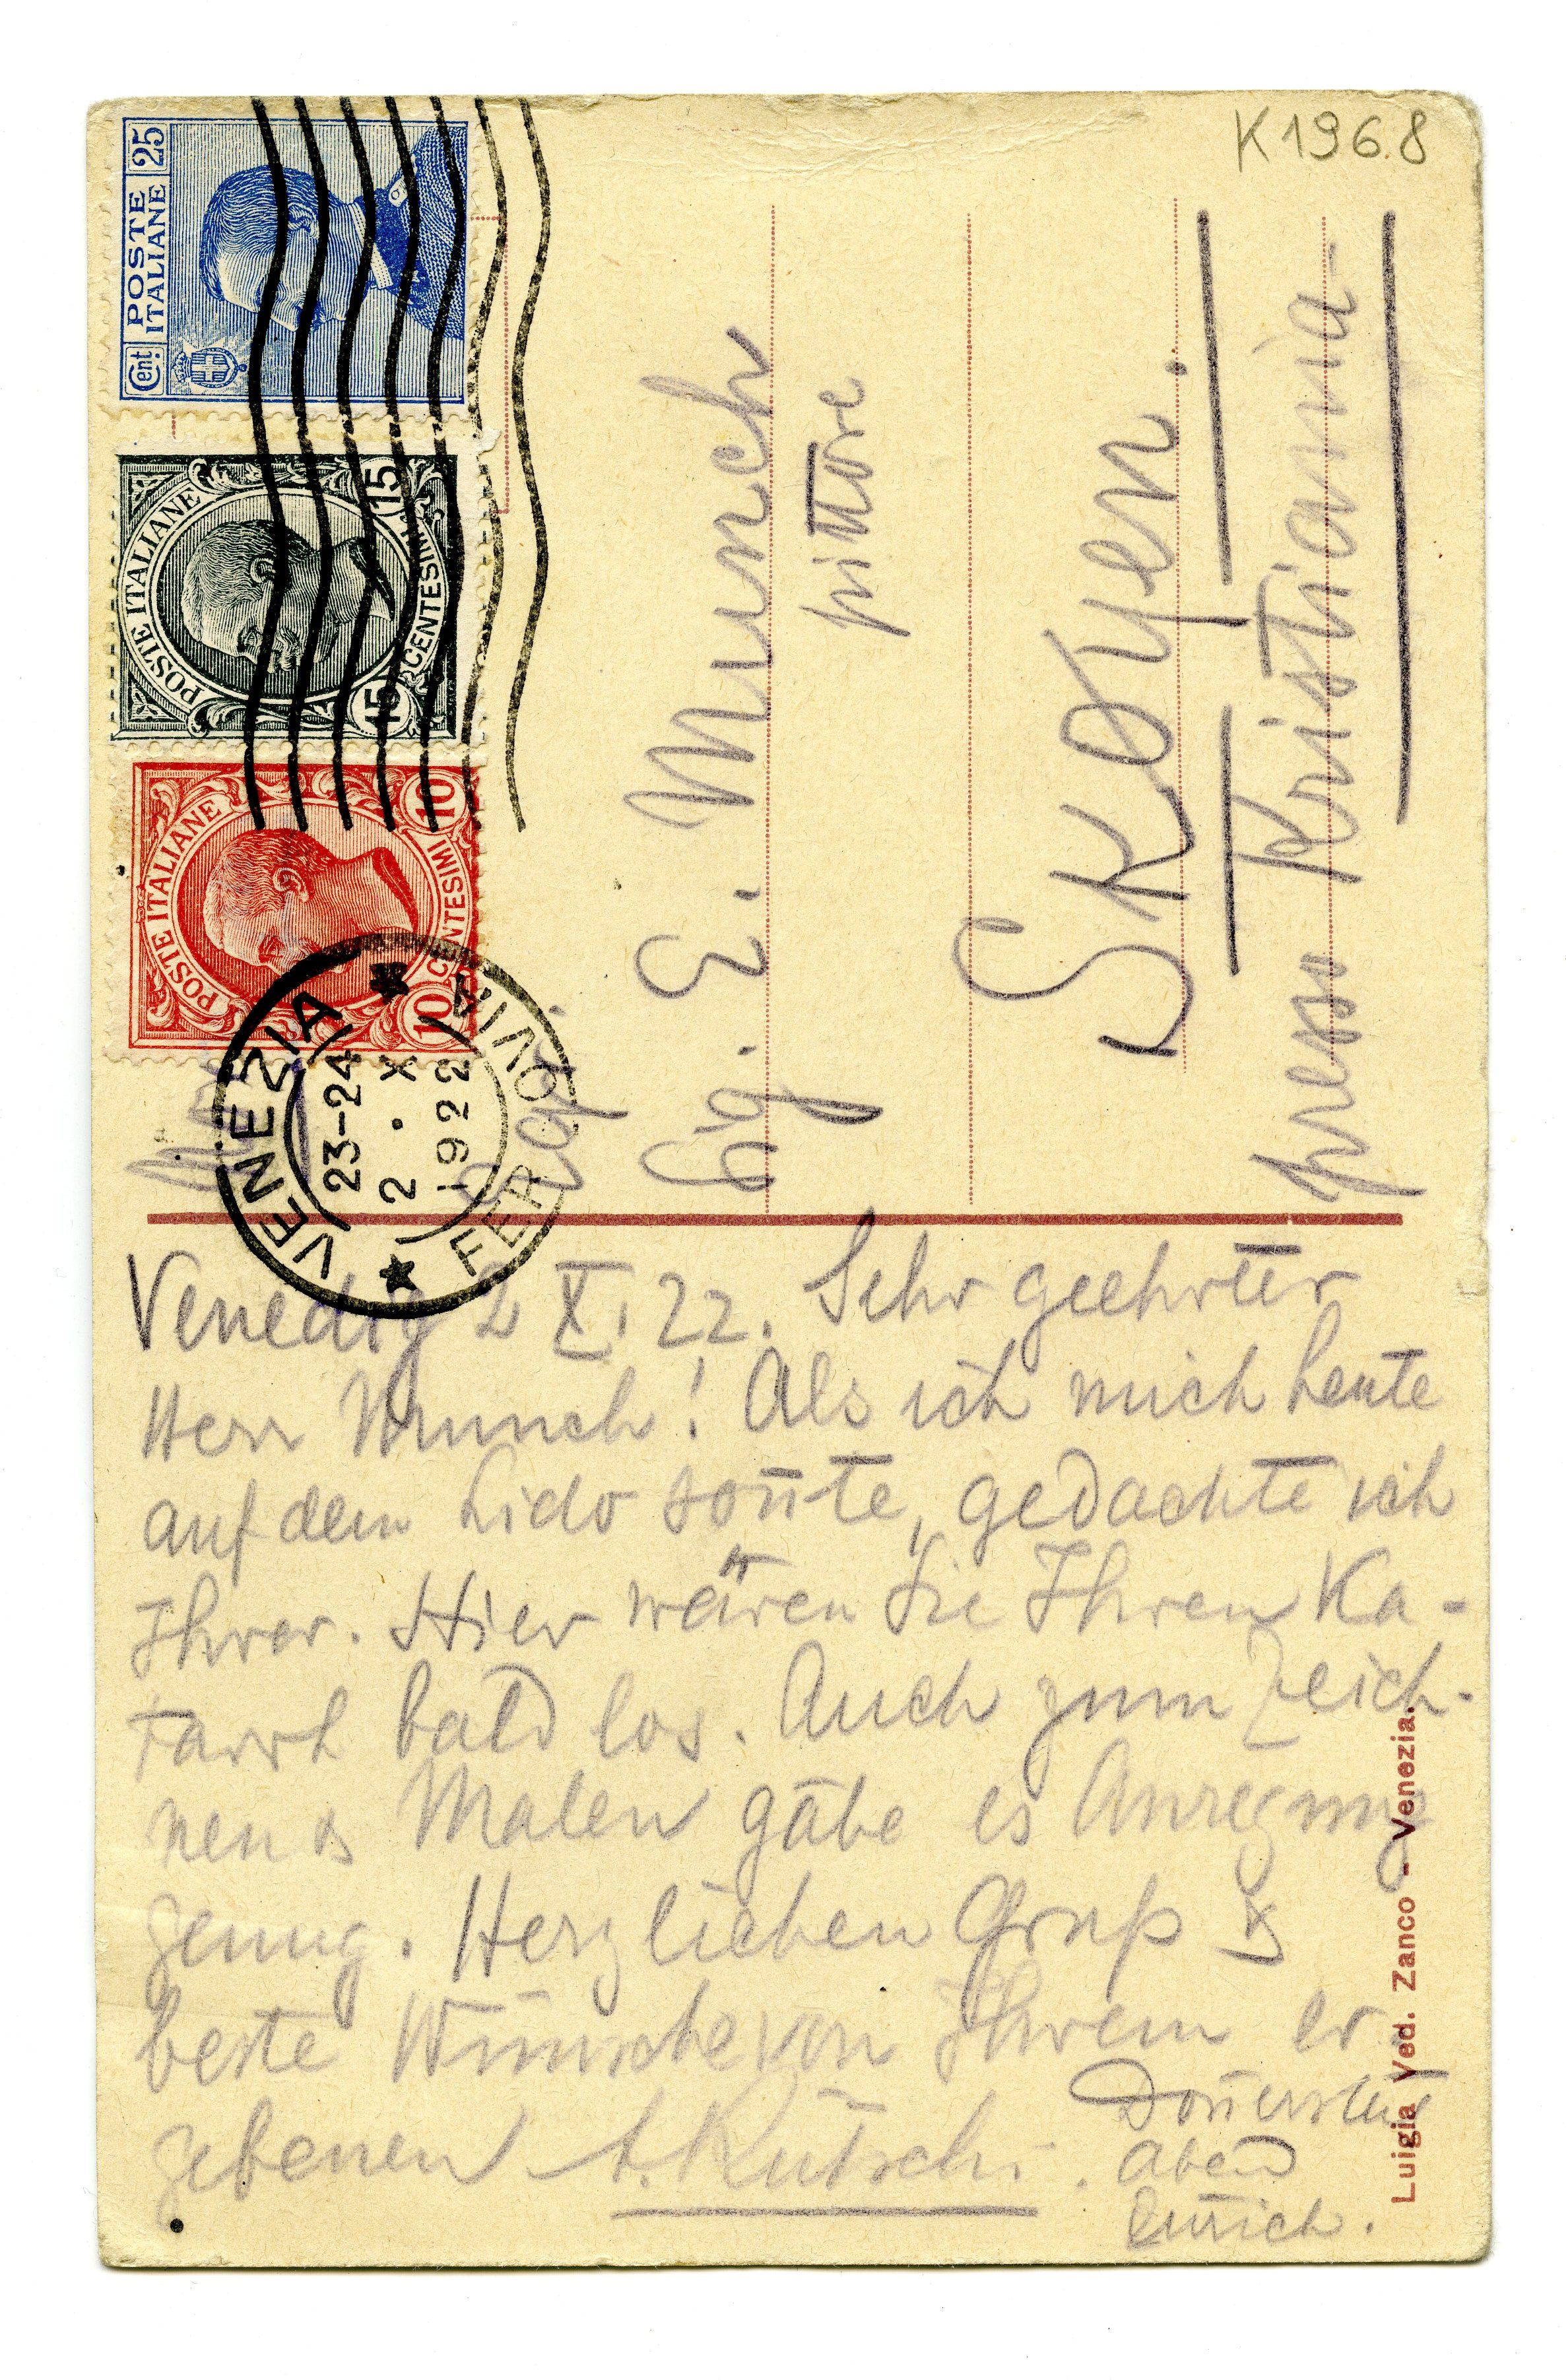 K 1968
Cent. POSTE ITALIANE 25
POSTE ITALIANE
15 CENTESIMI 15
POSTE ITALIANE
10 CENTESIMI 10
VENEZIA
23-24
2 • X
1922
FERROVIA
Sig. E. Munch
pittore
SKØyen.
presso Kristiania-
Venedig 2 X. 22. Sehr geehrter
Herr Munch! Als ich mich heute
auf dem Lido son̄te, gedachte ich
Ihrer. Hier wären Sie Ihren Ka-
tarrh bald los. Auch zum Zeich-
nen & Malen gäbe es Anregung
genug. Herzlichen Gruß &
beste Wünsche von Ihrem er
gebenen A. Rütschi.
Don̄erstag
Abend
Zürich.
Luigia Ved. Zanco - Venezia.